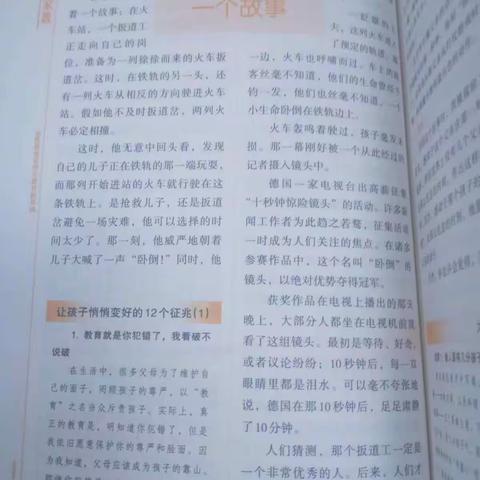 一个故事
着一个故事：在火
车站，一个扳道工
正走向自己的岗
位，准备为一列徐徐而来的火车扳
道岔。这时，在铁轨的另一头，还
有一列火车从相反的方向驶进火车
站。假如他不及时扳道岔，两列火
车必定相撞。
这时，他无意中回头看，发现
自己的儿子正在铁轨的那一端玩耍，
而那列开始进站的火车就行驶在这
条铁轨上。是抢救儿子，还是扳道
岔避免一场灾难，他可以选择的时
间太少了。那一刻，他威严地朝着
儿子大喊了一声“卧倒！”同时，他
让孩子悄悄变好的12个征兆(1)
1. 教育就是你犯错了，我看破不
说破
在生活中，很多父母为了维护自
己的面子，罔顾孩子的尊严，以“教
育”之名当众斥责孩子。实际上，真
正的教育是，明知道你犯错了，但是
我依旧愿意保护你的尊严和脸面。因
为我知道，父母应该成为孩子的靠山。
眨眼的
夫，这列火车进入
了预定的轨道。
一边，火车也呼啸而过。车上的旅
客丝毫不知道，他们的生命曾经千
钧一发，他们也丝毫不知道，一个
小生命卧倒在铁轨边上。
火车轰鸣着驶过，孩子毫发未
损。那一幕刚好被一个从此经过的
记者摄入镜头中。
德国一家电视台出高薪征集
“十秒钟惊险镜头”的活动。许多新
闻工作者为此趋之若鹜，征集活动
一时成为人们关注的焦点。在诸多
参赛作品中，这个名叫“卧倒”的
镜头，以绝对优势夺得冠军。
获奖作品在电视上播出的那天
晚上，大部分人都坐在电视机前观
看了这组镜头。最初是等待、好奇，
或者议论纷纷；10秒钟后，每一双
眼睛里都是泪水。可以毫不夸张地
说，德国在那10秒钟后，足足肃静
了10分钟。
人们猜测，那个扳道工一定是
一个非常优秀的人。后来，人们才